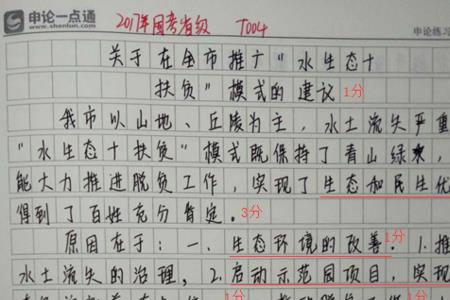 申论一点通
www.shenlun.com
2017年国考省级 T004
申论练习
关于在全市推广"水生态+
扶贫"模式的建议 1分
我市以山地、丘陵为主，水土流失严重
"水生态+扶贫"模式既保持了青山绿水，
能大力推进脱贫工作，实现了生态和民生优
得到了百姓充分肯定。3分
原因在于：一、生态环境的改善。1分 1.推
水土流失的治理，2.启动示范园项目，实现
1分
1分